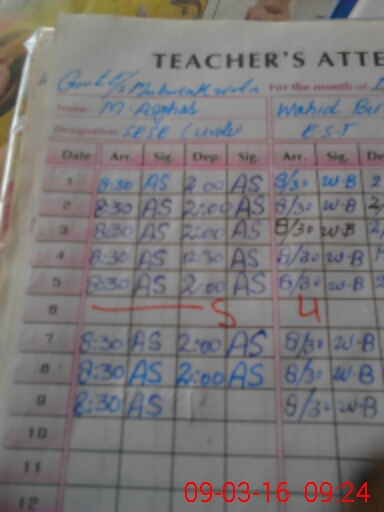 TEACHER'S ATTE
Govt E/S For the month of
Name: M. Asghar Wahid Bu
Designation: SESE (Urdu) EST
Date Arr. Sig. Dep. Sig. Arr. Sig. De
1 8:30 AS 2:00 AS 8/30 W-B 2
2 8:30 AS 2:00 AS 8/30 W-B 2
3 8:30 AS 2:00 AS 8/30 W-B 2
4 8:30 AS 12:30 AS 8/30 W-B 1
5 8:30 AS 2:00 AS 8/30 W-B 2
6 S U
7 8:30 AS 2:00 AS 8/30 W-B
8 8:30 AS 2:00 AS 8/30 W-B
9 8:30 AS 8/30 W-B
10
11
12
09-03-16 09:24